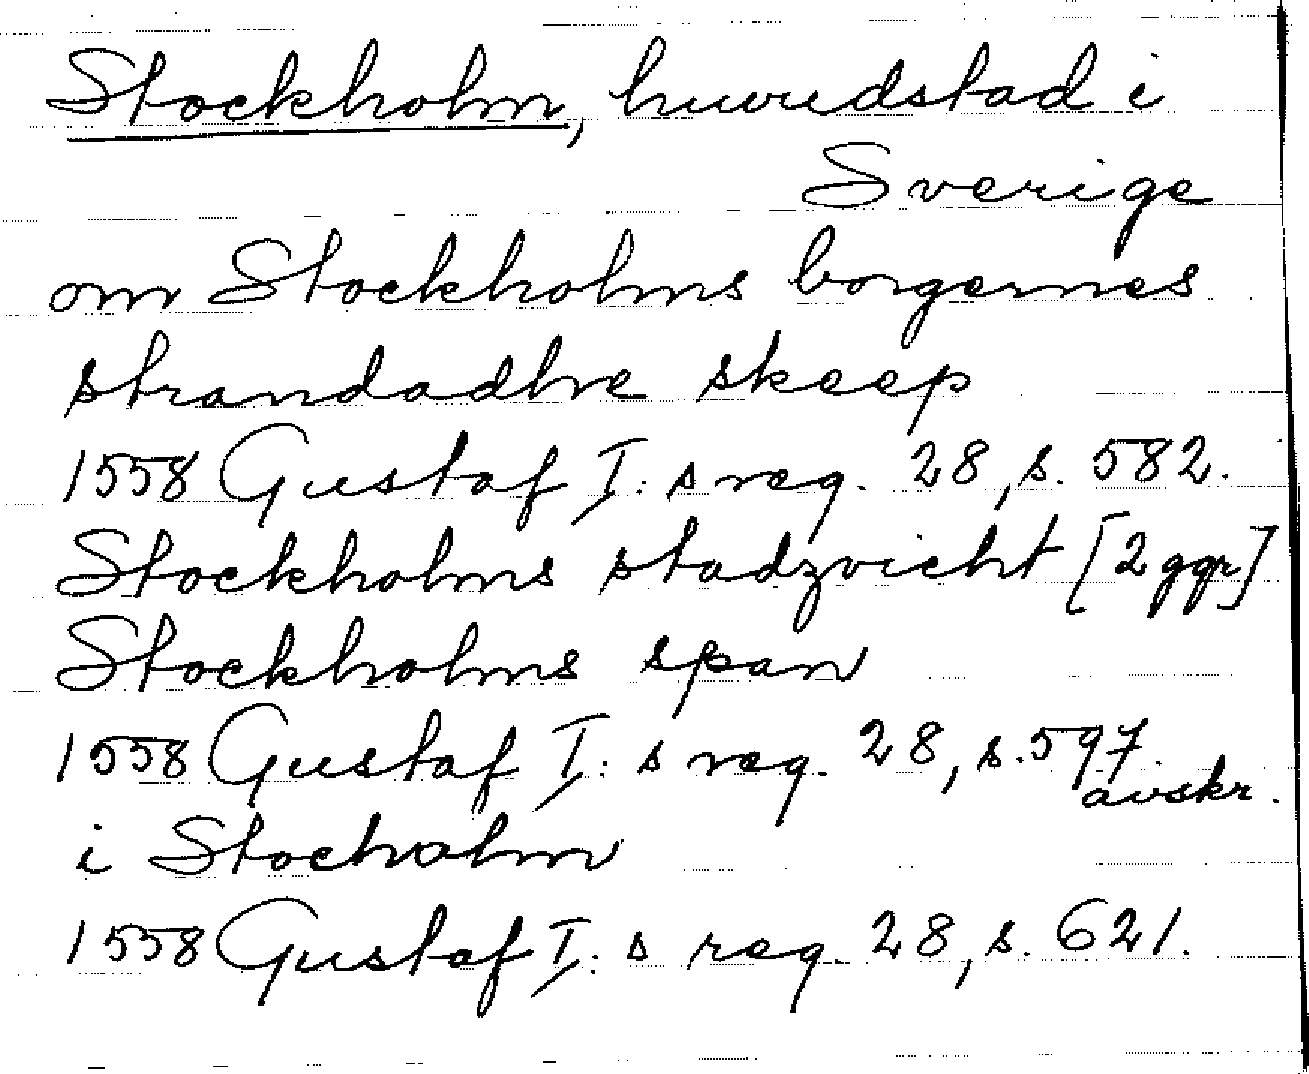 Stockholm, huvudstad i
Sverige
om Stockholms borgernes
strandadhe skeep
1558 Gustaf I:s reg. 28, s. 582.
Stockholms stadzvicht [2 ggr]
Stockholms span
1558 Gustaf I:s reg. 28, s. 597.
avskr.
i Stocholm
1558 Gustaf I:s reg. 28, s. 621.